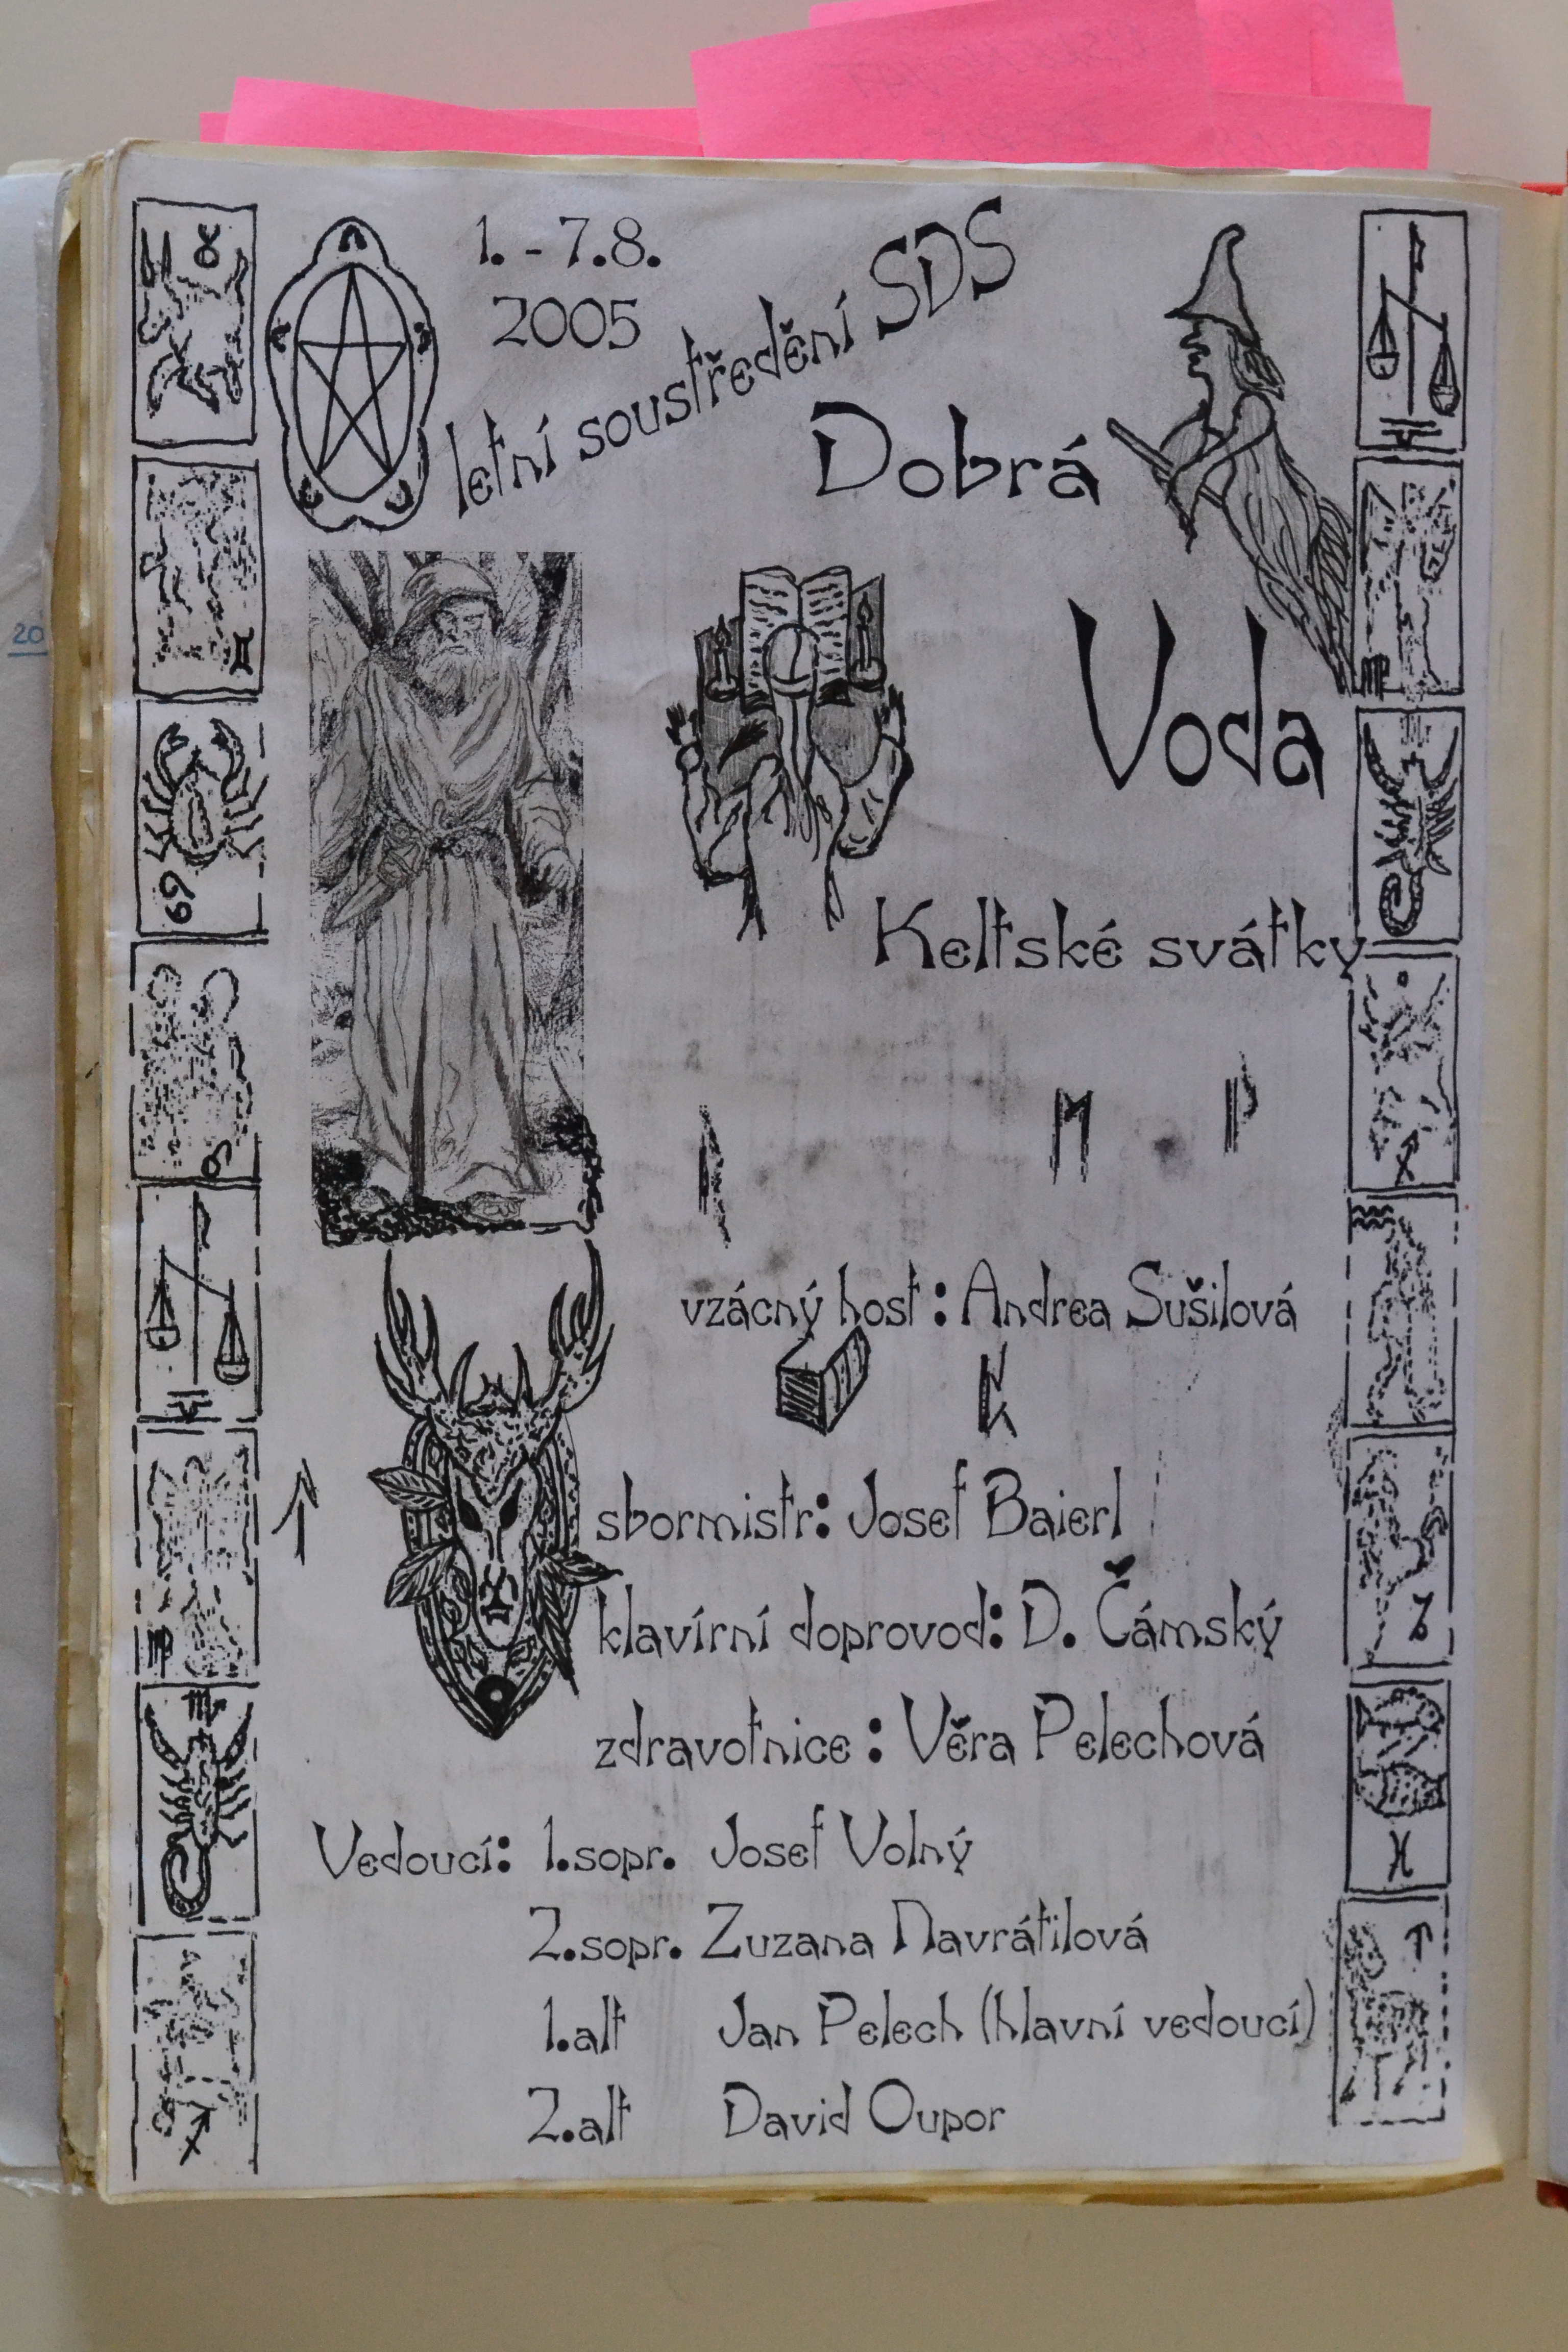 1. - 7.8.
2005
letní soustředění SDS
Dobrá
Voda
Keltské svátky
vzácný host : Andrea Sušilová
sbormistr: Josef Baierl
klavírní doprovod: D. Čámský
zdravotnice : Věra Pelechová
Vedoucí: 1.sopr. Josef Volný
2.sopr. Zuzana Navrátilová
1.alt Jan Pelech (hlavní vedoucí)
2.alt David Oupor
20